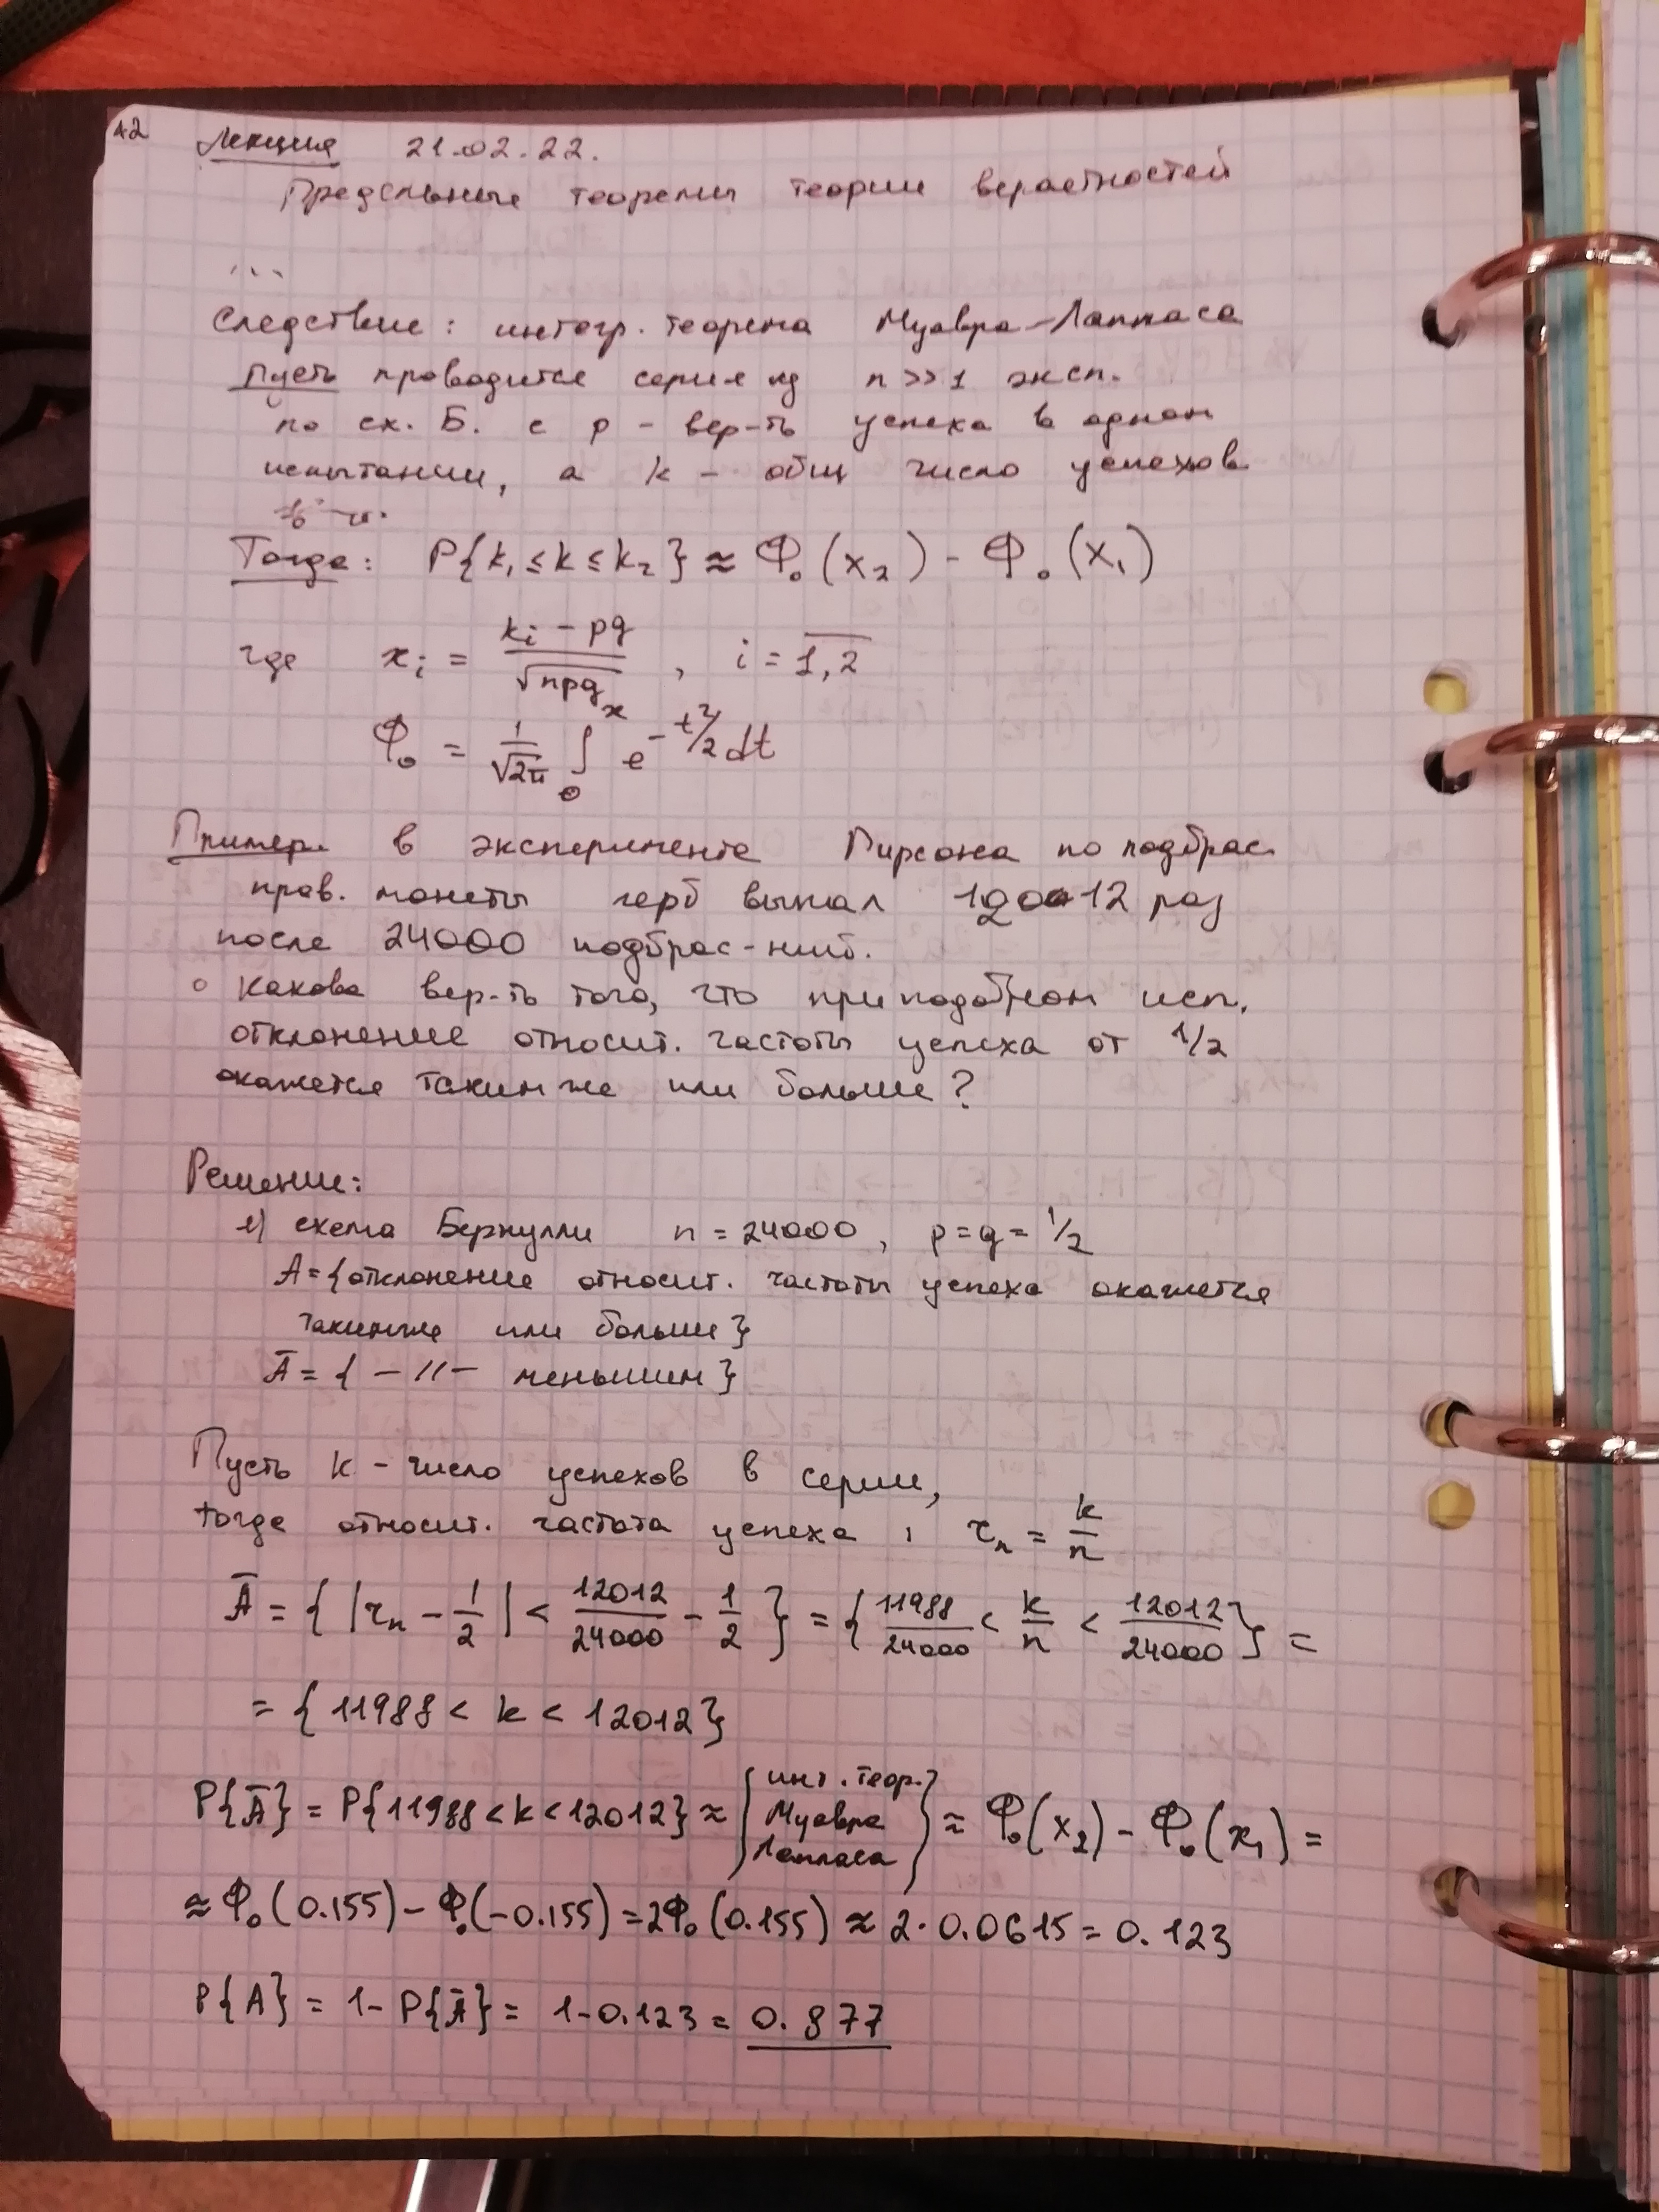 42 Лекция 21.02.22.
Предельные теоремы теории вераетностей
...
Следствие: интегр. теорема Муавра-Лапласа
Пусть проводится серия из n >> 1 эксп.
по сх. Б. с p - вер-ть успеха в одном
испытании, а k - общ число успехов
Тогда: P{k₁ ≤ k ≤ k₂} ≈ Φ₀(x₂) - Φ₀(x₁)
где xᵢ = (kᵢ - pq)/√npq , i = 1,2
Φ₀ = 1/√2π ∫₀ˣ e^(-t²/2) dt
Пример. в эксперименте Пирсона по подбрас.
прав. монеты герб выпал 12012 раз
после 24000 подбрас-ний.
◦ какова вер-ть того, что при подобном исп.
отклонение относит. частоты успеха от 1/2
окажется таким же или больше?
Решение:
1) схема Бернулли n = 24000, p = q = 1/2
A = {отклонение относит. частоты успеха окажется
таким же или больши}
Ā = { -//- меньшим}
Пусть k - число успехов в серии,
тогда относит. частота успеха : rₙ = k/n
Ā = { |rₙ - 1/2| < 12012/24000 - 1/2 } = { 11988/24000 < k/n < 12012/24000 } =
= {11988 < k < 12012}
P{Ā} = P{11988 < k < 12012} ≈ { инт. теор. Муавра Лапласа } ≈ Φ₀(x₂) - Φ₀(x₁) =
≈ Φ₀(0.155) - Φ₀(-0.155) = 2Φ₀(0.155) ≈ 2·0.0615 = 0.123
P{A} = 1 - P{Ā} = 1 - 0.123 = 0.877